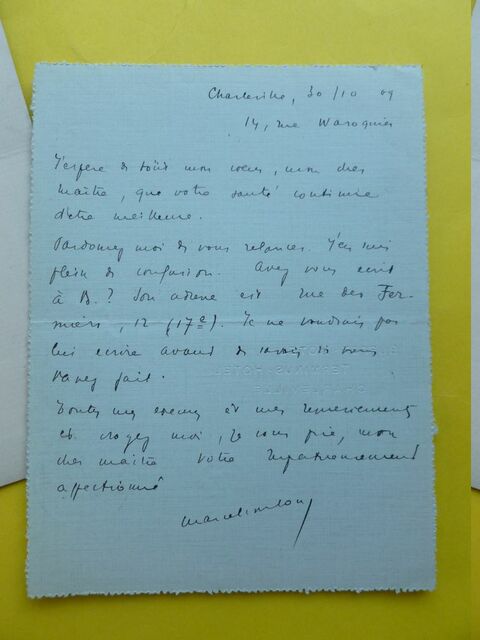 Charleville, 30/10 09
14, rue Waroquier
J'espère de tout mon coeur, mon cher
maître, que votre santé continue
d'être meilleure.
Pardonnez moi de vous relancer. J'en suis
plein de confusion. Avez vous écrit
à B.? Son adresse est rue des Fer-
miers, 12 (17e). Je ne voudrais pas
lui écrire avant de savoir si vous
l'avez fait.
Toutes mes excuses et mes remerciements
et croyez moi, je vous prie, mon
cher maître votre
affectionné
TERMINUS-HOTEL